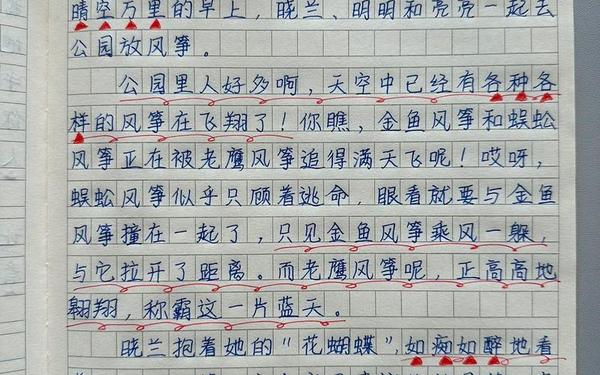 晴空万里的早上，晓兰、明明和亮亮一起去
公园放风筝。
公园里人好多啊，天空中已经有各种各
样的风筝在飞翔了！你瞧，金鱼风筝和蜈蚣
风筝正在被老鹰风筝追得满天飞呢！哎呀，
蜈蚣风筝似乎只顾着逃命，眼看就要与金鱼
风筝撞在一起了，只见金鱼风筝乘风一躲，
与它拉开了距离。而老鹰风筝呢，正高高地
翱翔，称霸这一片蓝天。
晓兰抱着她的“花蝴蝶”，如痴如醉地看